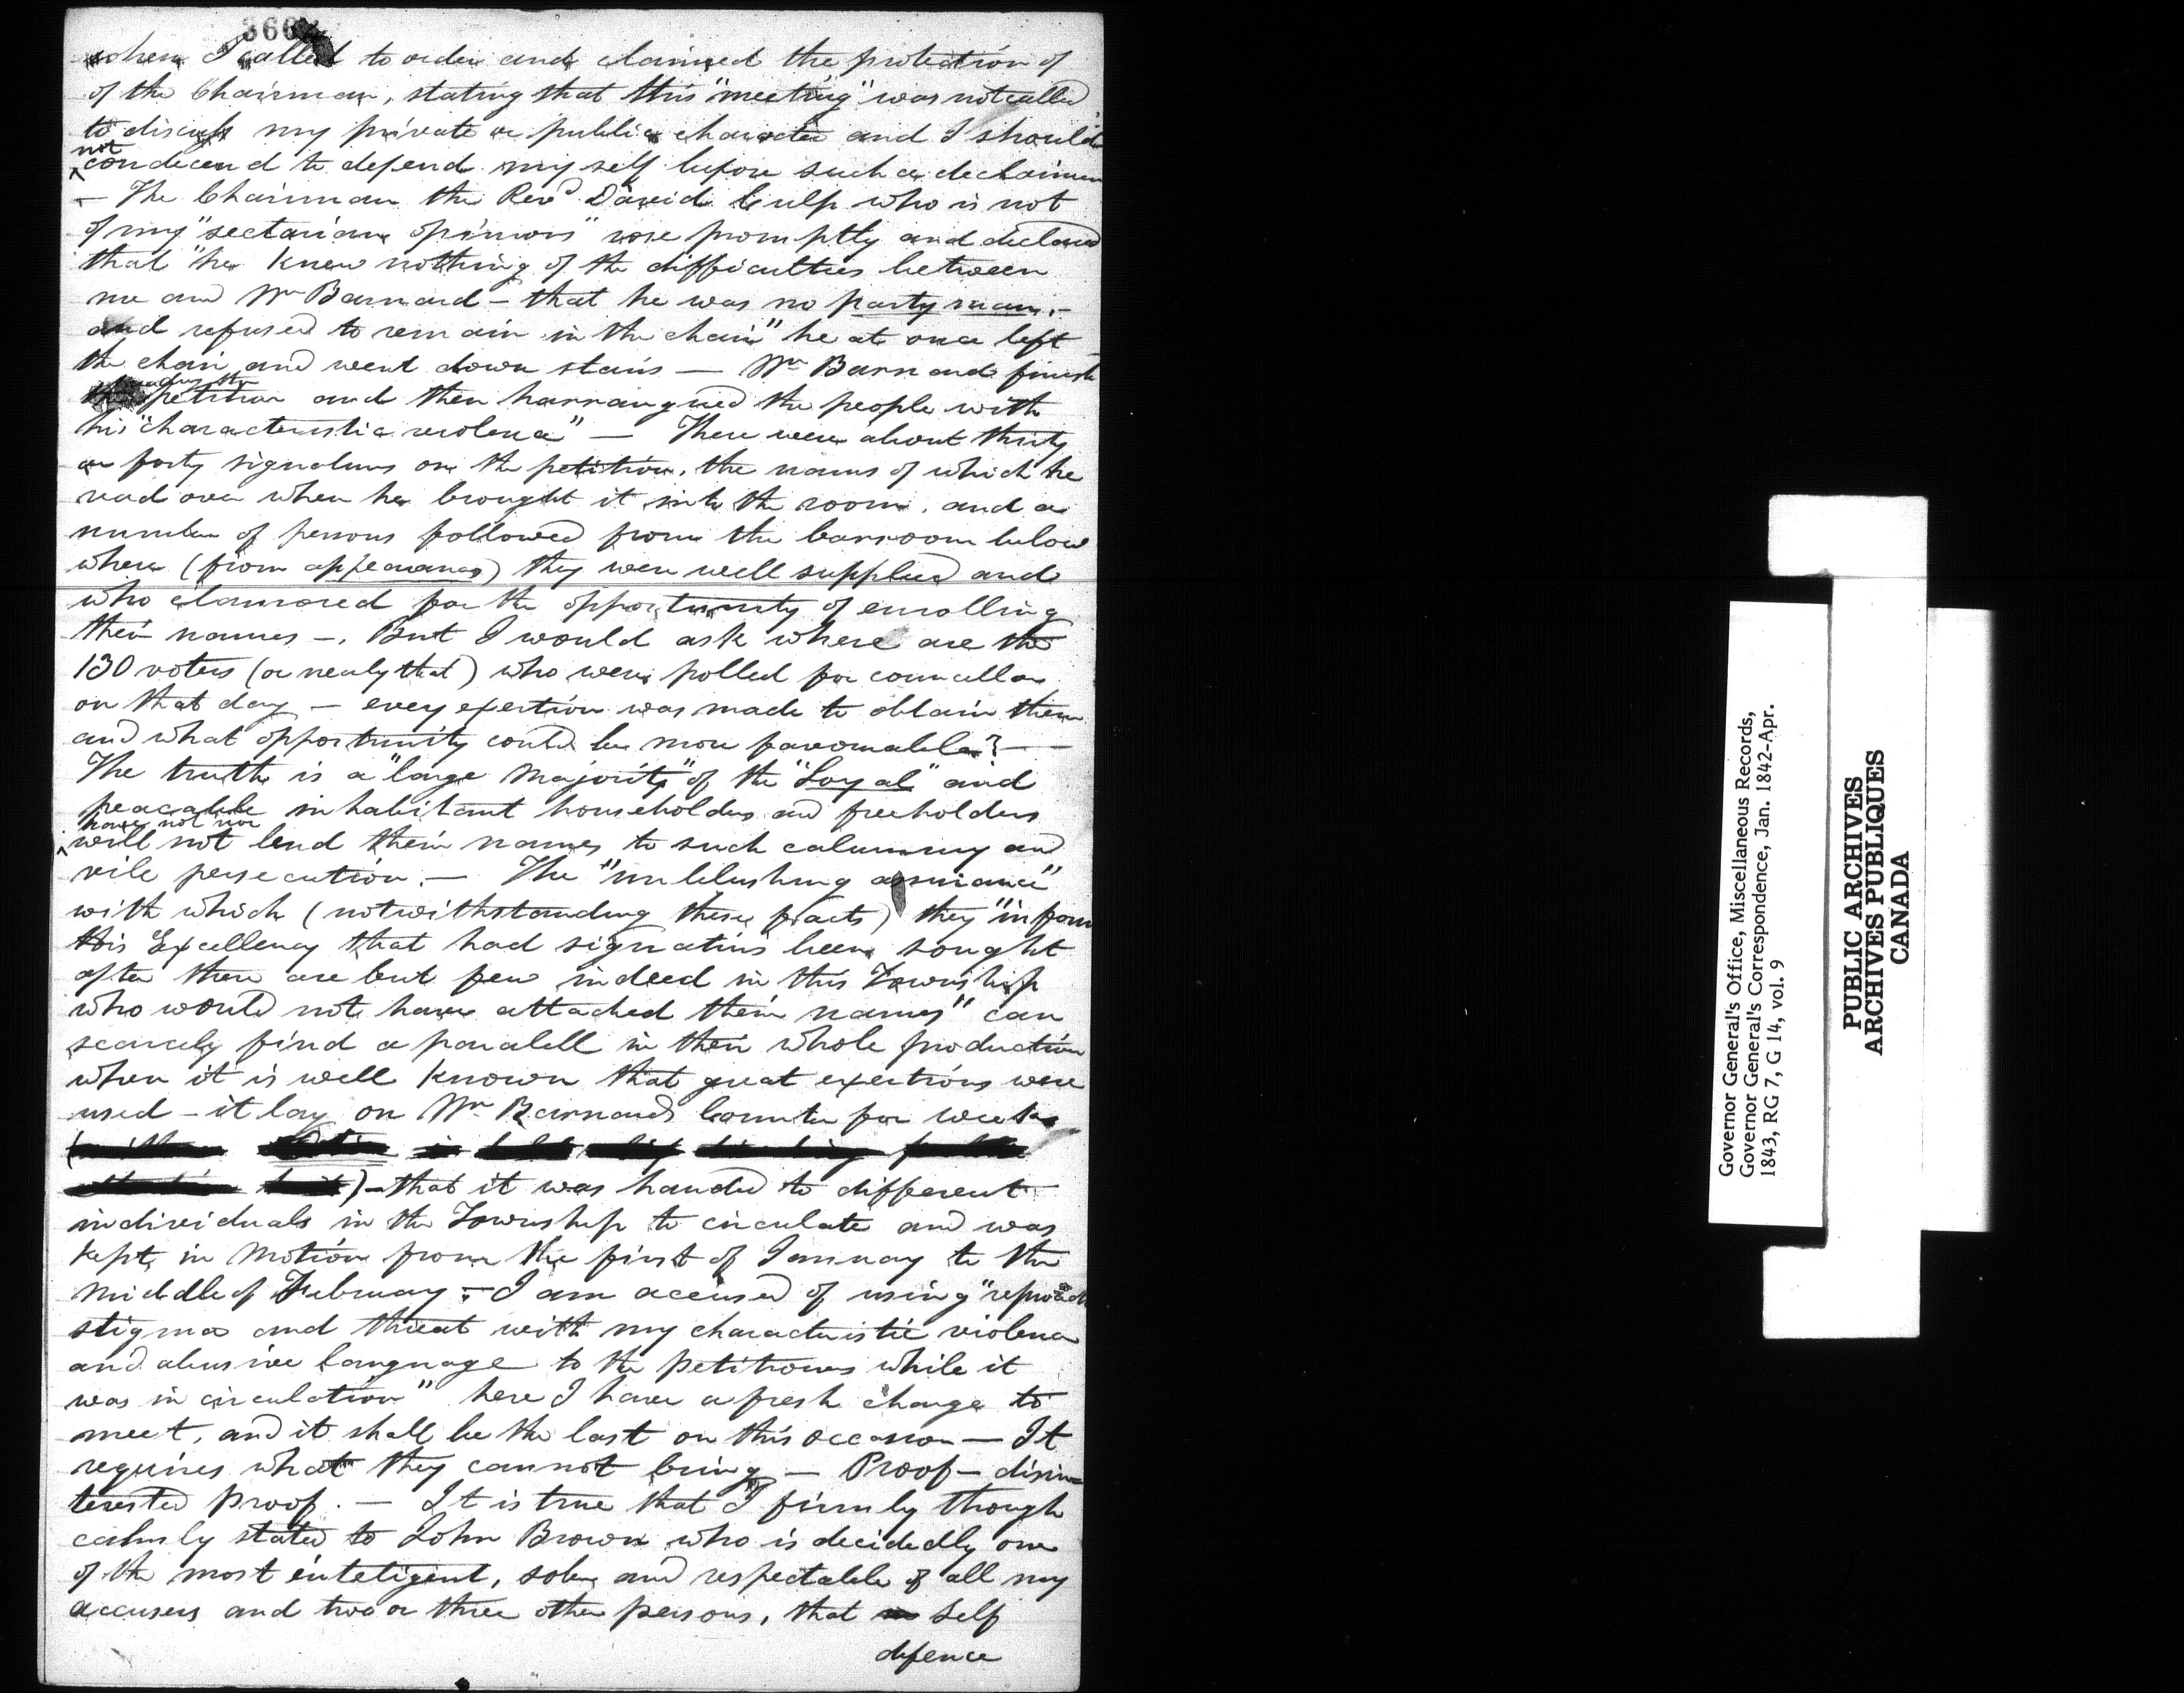 366
when I called to order and claimed the protection of
of the Chairman, stating that this "meeting" was not called
to discuss my private or public character and I should
not
condecend to defend my self before such a declaimer
– The Chairman the Revd David Culp who is not
of my "sectarian opinions" rose promptly and declared
that "he knew nothing of the difficulties between
me and Mr Barnard – that he was no party man, –
and refused to remain in the chair" he at once left
the chair and went down stairs – Mr Barnard finish
reading the
petition and then harrangued the people with
his "characteristic violence" – There were about thirty
or forty signatures on the petition, the names of which he
read over when he brought it into the room, and a
number of persons followed from the barroom below
where (from appearances) they were well supplied and
who clamored for the opportunity of enrolling
their names –. But I would ask where are the
130 voters (or nearly that) who were polled for councellor
on that day – every exertion was made to obtain them
and what opportunity could be more favourable? – –
The truth is a "large Majority" of the "Loyal" and
peacable inhabitant householders and freeholders
have not nor
will not lend their names to such calumny and
vile persecution. – The "unblushing assurance"
with which (notwithstanding these facts) they "inform
His Excellency that had signatures been sought
after there are but few indeed in this Township
who would not have attached their names" can
scarcely find a paralell in their whole production
when it is well known that great exertions were
used – it lay on Mr Barnards Counter for weeks
) – that it was handed to different
individuals in the Township to circulate and was
kept in Motion from the first of January to the
middle of February – I am accused of using "reproach
stigma and threat with my characteristic violence
and abusive language to the petitioners while it
was in circulation" here I have a fresh charge to
meet, and it shall be the last on this occasion – It
requires what they cannot bring – Proof – disin=
terested proof. – It is true that I firmly though
calmly stated to John Brown who is decidedly one
of the most inteligent, sober and respectable of all my
accusers and two or three other persons, that self
defence
Governor General's Office, Miscellaneous Records,
Governor General's Correspondence, Jan. 1842-Apr.
1843, RG 7, G 14, vol. 9
PUBLIC ARCHIVES
ARCHIVES PUBLIQUES
CANADA